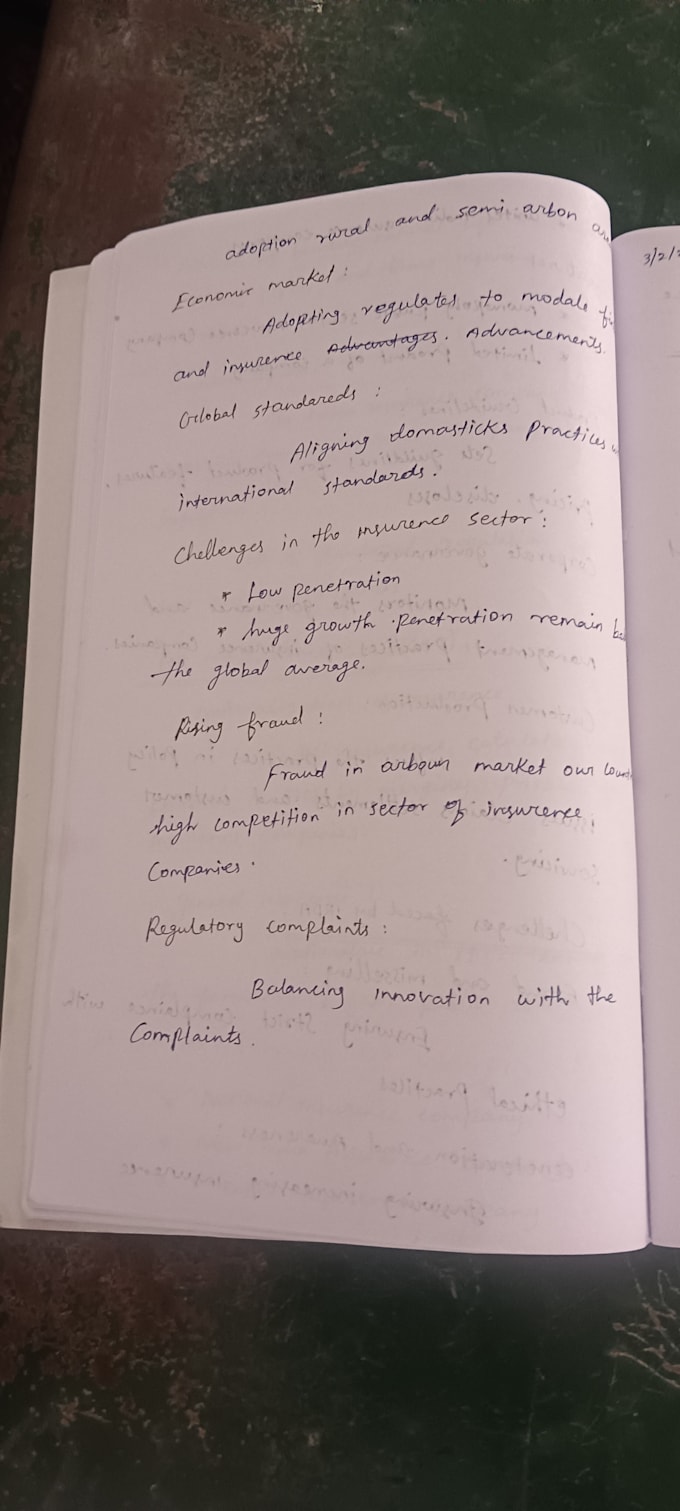 adoption rural and semi arbon
Economic market :
Adopting regulates to modale
and insurence Advantages. Advancements.
Global standareds :
Aligning domasticks Practices
international standards.
Chellenges in the insurence sector :
* Low penetration
* huge growth .Penetration remain
the global average.
Rising fraud :
Fraud in arboun market our
high competition in sector of insurence
Companies.
Regulatory complaints :
Balancing innovation with the
Complaints.
3/2/